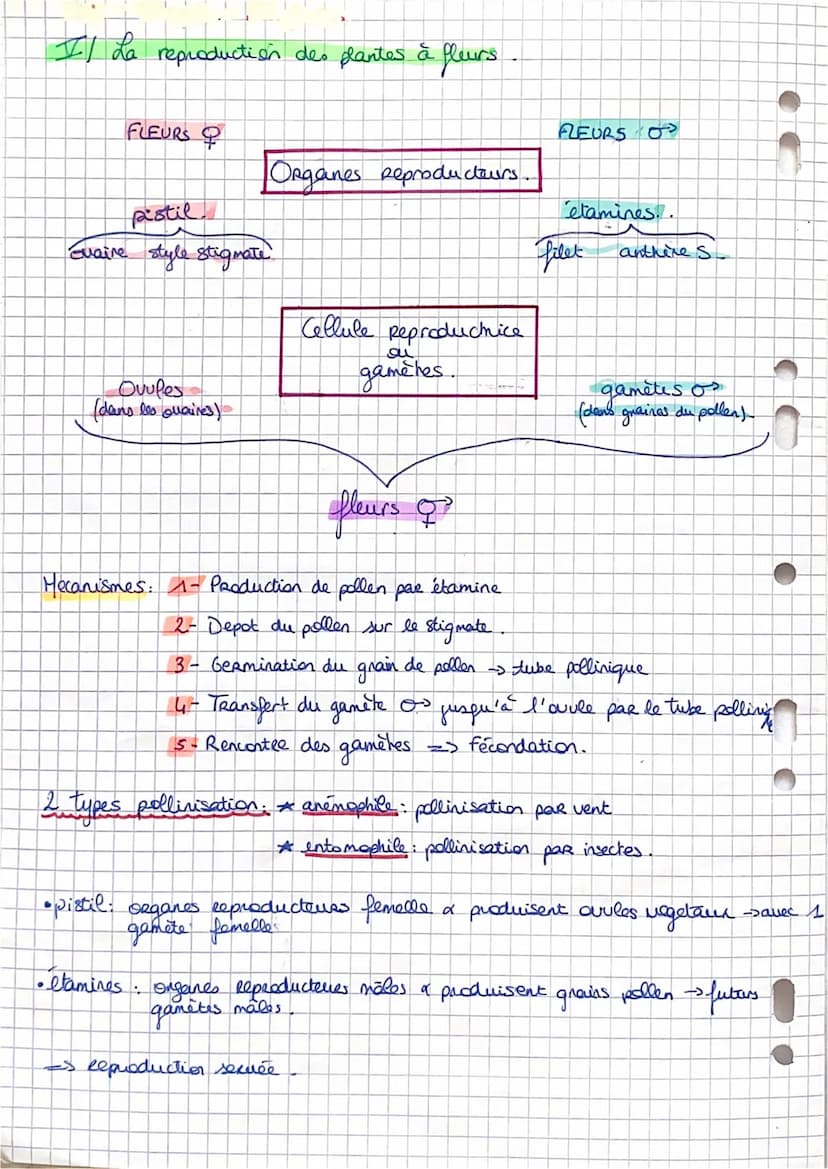 V/ La reproduction des plantes à fleurs.
FLEURS ♀ FLEURS ♂
Organes reproducteurs.
pistil. étamines.
ovaire style stigmate filet anthères.
Cellule reproductrice
ou
gamètes.
Ovules gamètes ♂
(dans les ovaires) (dans graines du pollen).
fleurs ⚥
Mecanismes: 1- Production de pollen par étamine
2- Depot du pollen sur le stigmate.
3- Germination du grain de pollen → tube pollinique
4- Transfert du gamète ♂ jusqu'à l'ovule par le tube pollinique
5- Rencontre des gamètes => fécondation.
2 types pollinisation: * anémophile: pollinisation par vent
* entomophile: pollinisation par insectes.
• pistil: organes reproducteurs femelle & produisent ovules vegetaux → avec 1
gamète femelle.
• étamines: organes reproducteurs mâles & produisent grains pollen → futurs
gamètes mâles.
=> reproduction sexuée.